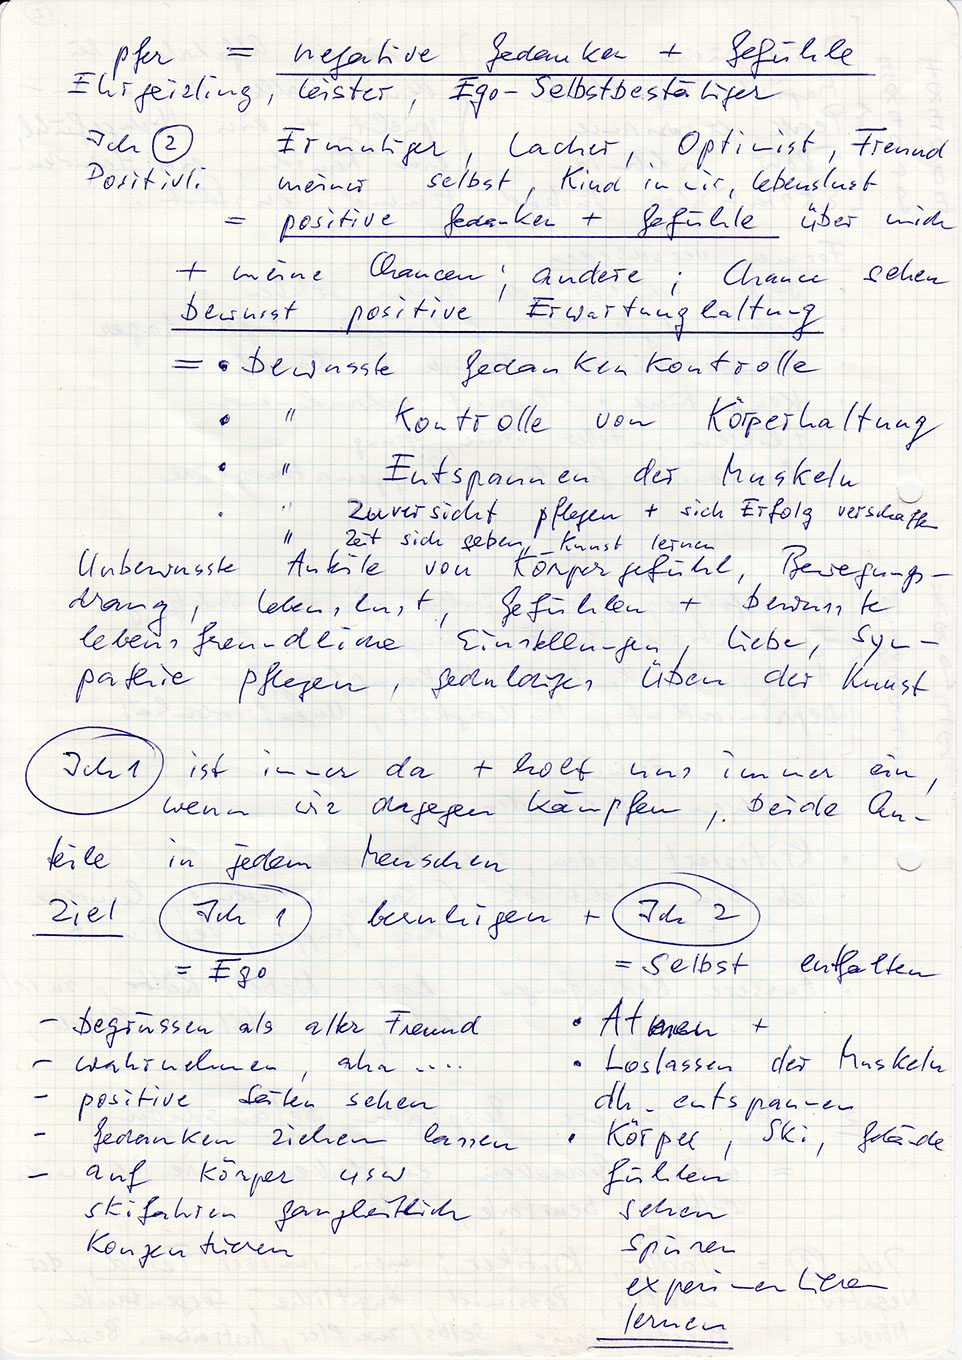 pfer = negative Gedanken + Gefühle
Ehrgeizling, Leister, Ego-Selbstbestätiger
Ich 2 Ermutiger, Lacher, Optimist, Freund
Positivli: meiner selbst, Kind in mir, Lebenslust
= positive Gedanken + Gefühle über mich
+ meine Chancen; andere; Chance sehen
bewusst positive Erwartunghaltung
= • Bewusste Gedankenkontrolle
• " Kontrolle von Körperhaltung
• " Entspannen der Muskeln
• " Zuversicht pflegen + sich Erfolg verschaffen
" Zeit sich geben, Kunst lernen
Unbewusste Anteile von Körpergefühl, Bewegungs-
drang, Lebenslust, Gefühlen + bewusste
lebensfreundliche Einstellungen, Liebe, Sym-
pathie pflegen, geduldiges Üben der Kunst
Ich 1 ist immer da + holt uns immer ein,
wenn wir dagegen kämpfen, Beide An-
teile in jedem Menschen
Ziel Ich 1 beruhigen + Ich 2
= Ego = Selbst entfalten
- begrüssen als alter Freund
- wahrnehmen, aha ....
- positive Seiten sehen
- Gedanken ziehen lassen
- auf Körper usw
skifahren ganzheitlich
Konzentrieren
• Atmen +
• Loslassen der Muskeln
dh. entspannen
• Körper, Ski, Gelände
fühlen
sehen
spüren
experimentieren
lernen